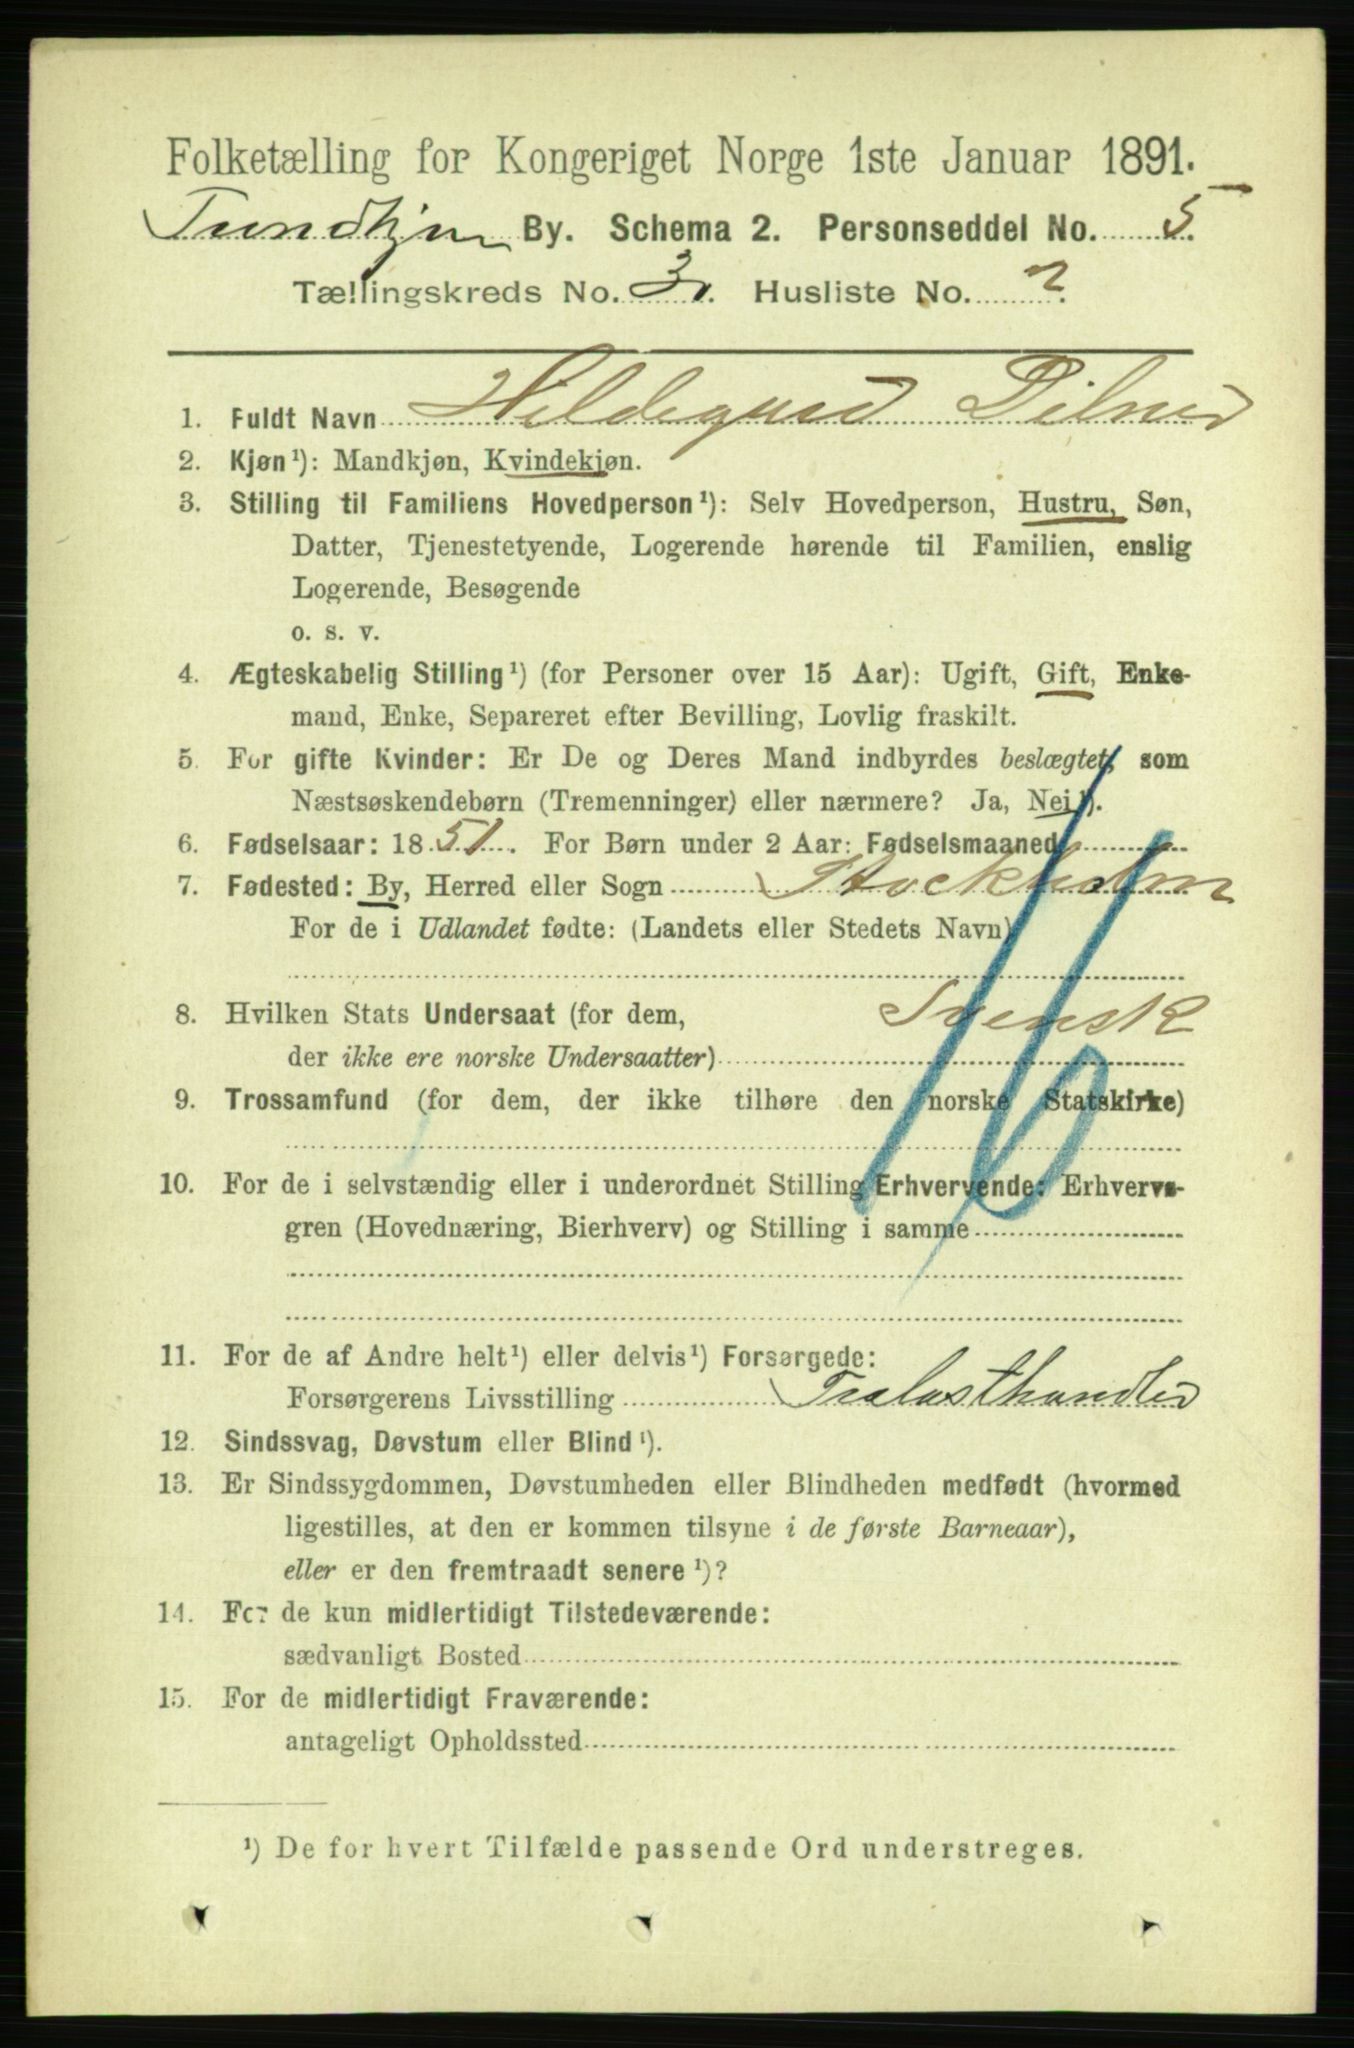 Folketælling for Kongeriget Norge 1ste Januar 1891.
Trondhjem By. Schema 2. Personseddel No. 5.
Tællingskreds No. 3. Husliste No. 2.
1. Fuldt Navn Hildegard Dilner
2. Kjøn¹): Mandkjøn, Kvindekjøn.
3. Stilling til Familiens Hovedperson¹): Selv Hovedperson, Hustru, Søn,
Datter, Tjenestetyende, Logerende hørende til Familien, enslig
Logerende, Besøgende
o. s. v.
4. Ægteskabelig Stilling¹) (for Personer over 15 Aar): Ugift, Gift, Enke-
mand, Enke, Separeret efter Bevilling, Lovlig fraskilt.
5. For gifte Kvinder: Er De og Deres Mand indbyrdes beslægtet, som
Næstsøskendebørn (Tremenninger) eller nærmere? Ja, Nei¹).
6. Fødselsaar: 1851. For Børn under 2 Aar: Fødselsmaaned
7. Fødested: By, Herred eller Sogn Stockholm
For de i Udlandet fødte: (Landets eller Stedets Navn)
8. Hvilken Stats Undersaat (for dem, Svensk
der ikke ere norske Undersaatter)
9. Trossamfund (for dem, der ikke tilhøre den norske Statskirke)
16
10. For de i selvstændig eller i underordnet Stilling Erhvervende: Erhvervs-
gren (Hovednæring, Bierhverv) og Stilling i samme
11. For de af Andre helt¹) eller delvis¹) Forsørgede:
Forsørgerens Livsstilling Trælasthandler
12. Sindssvag, Døvstum eller Blind¹).
13. Er Sindssygdommen, Døvstumheden eller Blindheden medfødt (hvormed
ligestilles, at den er kommen tilsyne i de første Barneaar),
eller er den fremtraadt senere¹)?
14. For de kun midlertidigt Tilstedeværende:
sædvanligt Bosted
15. For de midlertidigt Fraværende:
antageligt Opholdssted
¹) De for hvert Tilfælde passende Ord understreges.